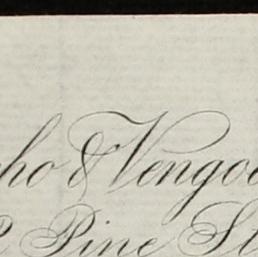 ho & Vengo
2 Pine St